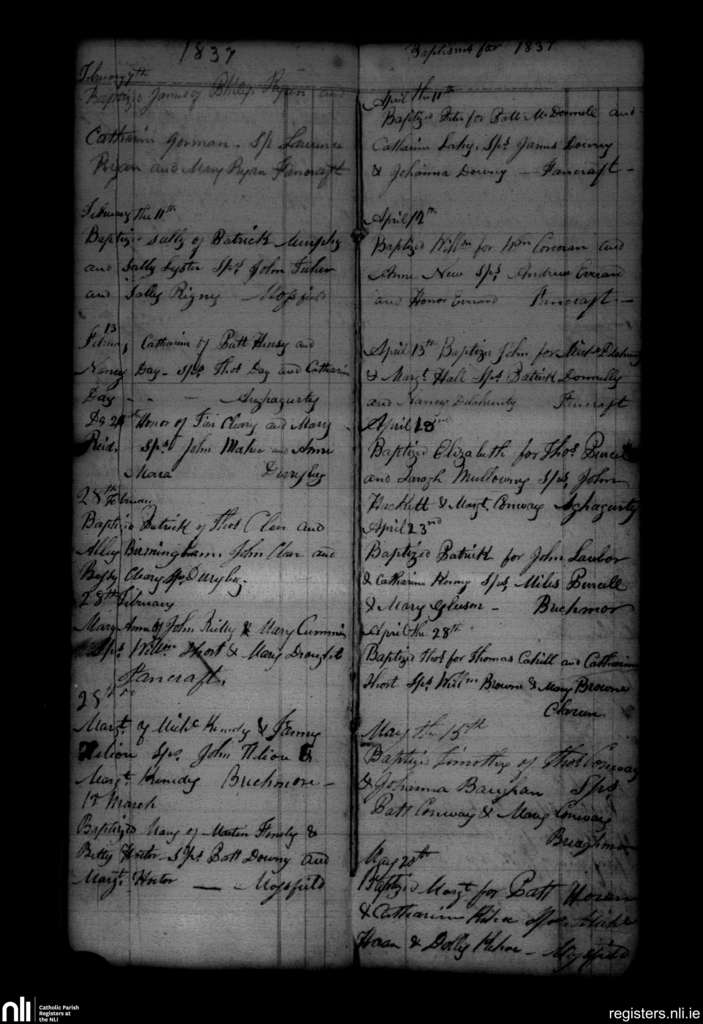 1837
February 7th
Baptized James of Philip Ryan and
Catharin Gorman. Sps Lawrence
Ryan and Mary Ryan Fancraft
February the 11th
Baptized Sally of Patrick Murphy
and Sally Lyster Sps John Fisher
and Sally Rigney Mossfield
13
Februy Catharin of Patt Henry and
Nancy Day - Sps Thos Day and Catharin
Day - - - Aughagurty
Do 21st Honor of Cleary and Mary
Reid. Sps John Maher and Ann
Mara Derrybeg
25th February
Baptized Patrick of Thos Clear and
Alley Birmingham. John Clear and
Cleary Sps Derrybeg.
25th February
Mary Ann of John Reilly & Mary Cummins
Sps Willm Short & Mary Drought
Fancraft
Margt of Michl Kennedy & Fanny
Nelson Sps John Nelson &
Margt Kennedy Buchmore -
1st March
Baptized Mary of Martin &
Betty Horton Sps Patt Downy and
Margt Horton — Mossfield
Baptisms for 1837
April the 11th
Baptized Peter for Patt McDonnele and
Catharine Lahy. Sps James Downy
& Johanna Downy — Fancraft -
April 12th
Baptized Willm for Wm Corcoran and
Anne New Sps Andrew Everard
and Honor Everard Fancraft —
April 13th Baptized John for Delahunty
& Margt Hall Sps Patrick Donnelly
and Nancy Delahunty Fancraft
April 18
Baptized Elizabeth for Thos Purcell
and Mullowny Sps John
Hackett & Margt Conway Aghagurty
April 23rd
Baptized Patrick for John Lawlor
& Catharin Sps Miles Purcell
& Mary Gleeson - Buchmor
April the 28th
Baptized Thos for Thomas Cahill and Catharin
Short Sps Willm Browne & Mary Browne
May the 15th
Baptized Timothy of Thos Conway
& Johanna Baughan Sps
Patt Conway & Mary Conway
May 20th
Baptized Margt for Patt Horan
& Catharin Kehoe Sps Michl
Horan & Dolly Kehoe - Mossfield
nli
Catholic Parish
Registers at
the NLI
registers.nli.ie